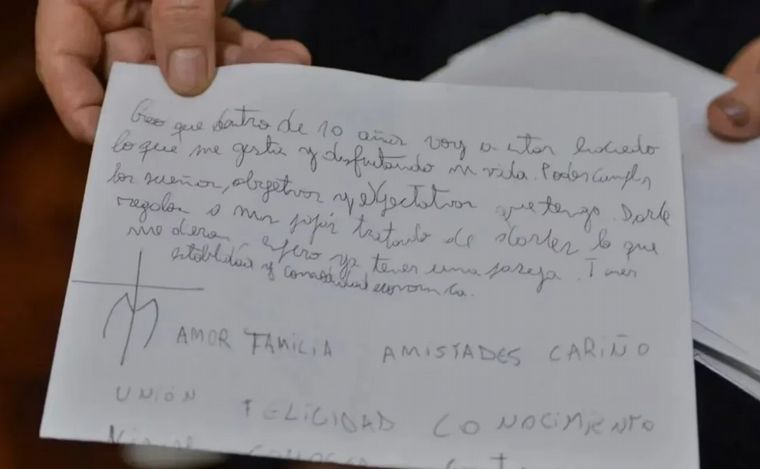 Creo que dentro de 10 años voy a estar haciendo
lo que me gusta y disfrutando mi vida. Poder cumplir
los sueños, objetivos y expectativas que tengo. Darle
regalos a mis papás tratando de darles lo que
me dieran, espero ya tener una pareja. Tener
estabilidad y economica.
AMOR FAMILIA AMISTADES CARIÑO
UNIÓN FELICIDAD CONOCIMIENTO